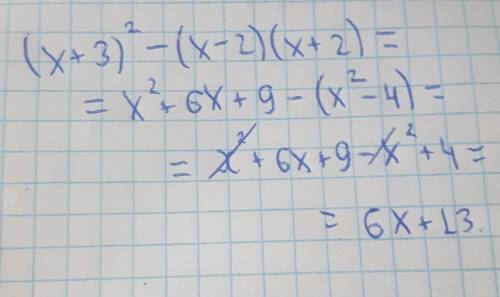 (x+3)² - (x-2)(x+2) =
= x² + 6x + 9 - (x² - 4) =
= x² + 6x + 9 - x² + 4 =
= 6x + 13.